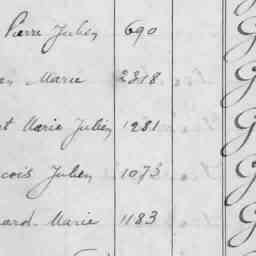 Pierre Julien 690 G
Marie 2818 G
Marie Julien 1281 G
cois Julien 1073 G
ard-Marie 1183 G